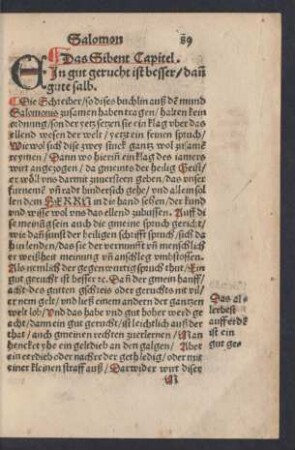 Salomon 89
Das Sibent Capitel.
EIn gut gerucht ist besser/ dañ
gute salb.
Die Schreiber/ so dises buchlin auß dẽ mund
Salomonis zusamen haben tragen/ halten kein
ordnung/ sonder yetz setzen sie ein klag vber das
ellend wesen der welt/ yetzt ein feinen spruch/
Wie wol sich dise zwey stuck gantz wol zusamẽ
reymen/ Dann wo hieriñ ein klag des iamers
wirt angezogen/ da gmeint der heilig Geist/
er wöll vns darmit zuuersteen geben/ das vnser
furnemẽ vñ radt hindersich gehe/ vnd allein sol
len dem HERRN in die hand sehen/ der kund
vnd wisse wol vns das ellend zubussen. Auff di
se meinũg seĩn auch die gmeine spruch gericht/
wie dañ sunst der heiligen schrifft spruch/ sich da
hin lenden/ das sie der vernunfft vñ menschlich
er weißheit meinung vñ anschleg vmbstossen.
Als nemlich der gegenwurtig spruch thut/ Ein
gut gerucht ist besser ꝛc. Dañ der gmein hauff/
achts eins gutten gschreis oder geruchts nit vil/
er nem gelt/ vnd ließ einem andern der gantzen
welt lob/ Vnd das habe vnd gut hoher werd ge
acht/ dann ein gut gerucht/ ist leichtlich auß der
that/ auch gmeinen rechten zuerlernen/ Man
hencket ehe ein geltdieb an den galgen/ Aber
ein eerdieb oder nachrer der geth ledig/ oder mit
einer kleinen straff auß/ Darwider wirt diser
M
Das al-
lerbest
auff erdẽ
ist ein
gut ge-